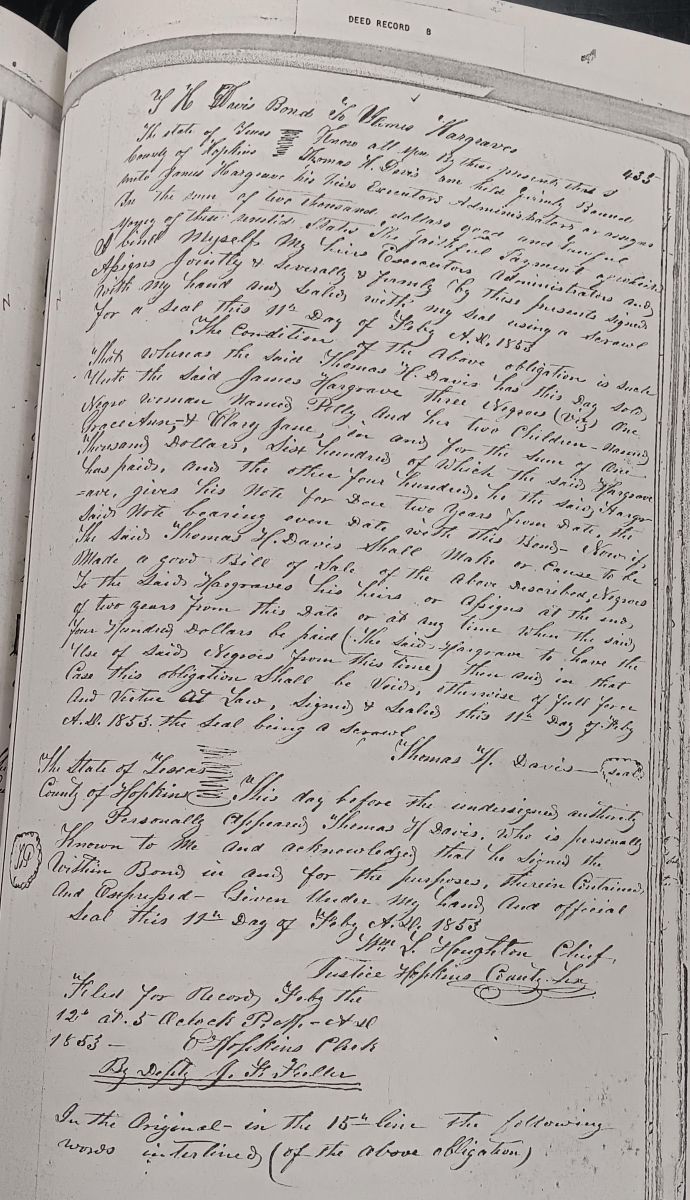 DEED RECORD B
T H Davis Bond To James Hargraves
433
The State of Texas Know all Men By these presents that I
County of Hopkins Thomas H. Davis am held firmly Bound
unto James Hargrave his heirs Executors Administrators or assigns
In the sum of two thousand dollars good and lawful
Money of these United States the faithful Payment of which
I bind Myself My heirs Executors Administrators and
Assigns Jointly & Severally & firmly by these presents signed
with my hand and Sealed with my seal using a Scrawl
for a seal this 11th Day of Feby A.D. 1853
The Condition of the above obligation is such
That whereas the said Thomas H. Davis has this Day sold
Unto the said James Hargrave three Negroes (Viz) One
Negro woman Named Polly And her two Children - Named
Grace Ann, & Clary Jane, for and for the sum of One
Thousand Dollars, Six hundred of Which the said Hargrave
has paid, and the other four hundred, he the said Hargr-
=ave, gives his Note for Due two years from Date, the
said Note bearing even Date with this Bond - Now if,
The said Thomas H. Davis Shall Make or Cause to be
Made a good Bill of Sale of the above Described Negroes
To the said Hargraves his heirs or Assigns at the end,
of two years from this Date or at any time when the said
four Hundred Dollars be paid (The said Hargrave to have the
Use of said Negroes from this time) then and in that
Case this obligation Shall be Void, otherwise of full force
And Virtue At Law, Signed & Sealed this 11th Day of Feby
A.D. 1853. the Seal being a Scrawl
Thomas H. Davis seal
The State of Texas
County of Hopkins This day before the undersigned authority
Personally Appeared Thomas H Davis, Who is personally
Known to Me and acknowledged that he Signed the
Within Bond in and for the purposes, therein Contained,
And Expressed - Given Under My hand and official
Seal this 11th Day of Feby A.D. 1853
Wm L. Houghton Chief,
Justice Hopkins County Tex
Filed for Record Feby the
12th at 5 Oclock P.M. - A D
1853 - E Hopkins Clerk
By Depty J. K. Keller
In the Original - in the 15th line the following
words interlined (of the above obligation)